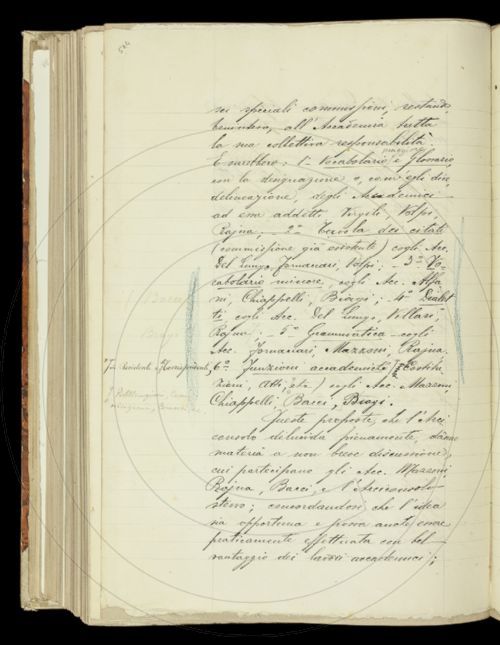 sei speciali commissioni, restando
all'Accademia tutta
la sua collettiva responsabilità.
1º Vocabolario e Glossario
con la designazione o, com'egli dice,
delineazione, degli Accademici
ad essa addetti Virgili, Volpi,
Rajna. - 2º Tavola dei citati
(commissione già esistente) cogli Acc.
Del Lungo, Fornaciari, Volpi; - 3º Vo-
cabolario minore, cogli Acc. Alfa-
ni, Chiappelli, Biagi; - 4º Dialet-
ti cogli Acc. Del Lungo, Villari,
Rajna. - 5º Grammatica - cogli
Acc. Fornaciari, Mazzoni, Rajna.
Residenti, Corrispondenti,
6º Funzioni accademiche (Costitu-
zioni, Atti, etc.) cogli Acc. Mazzoni,
Chiappelli, Bacci, Biagi.
Queste proposte, che l'Arci-
consolo delucida pienamente, danno
materia a non breve discussione,
cui partecipano gli Acc. Mazzoni
Rajna, Bacci, e l'Arciconsolo
stesso; concordandosi che l'idea
sia opportuna e possa anche essere
praticamente effettuata con bel
vantaggio dei lavori accademici;